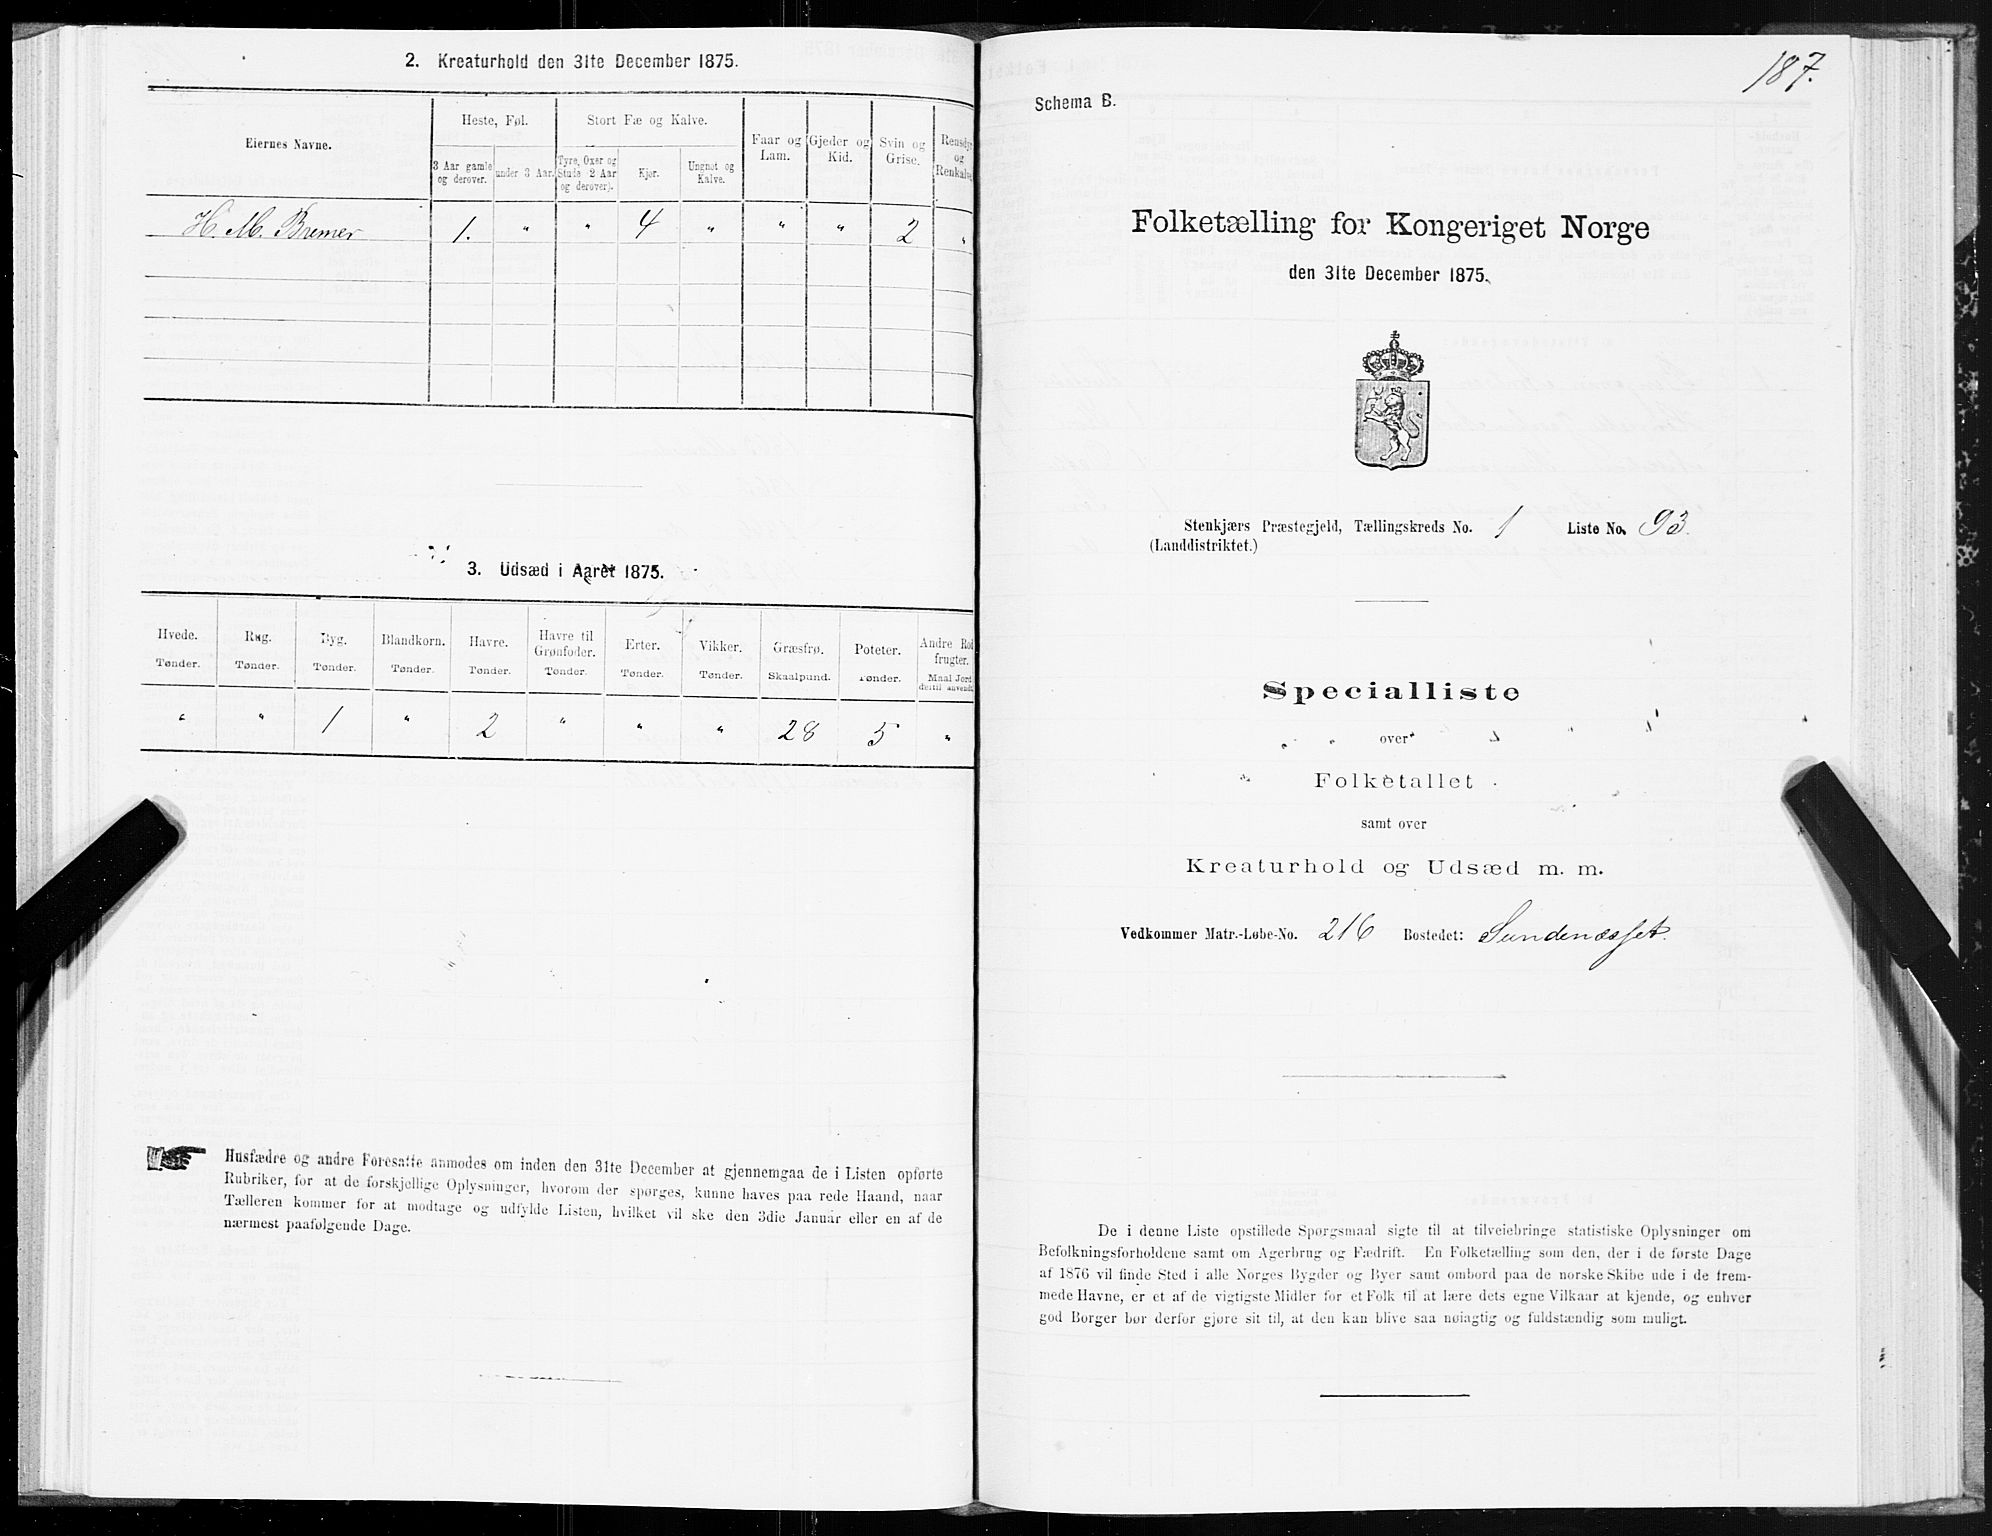 2. Kreaturhold den 31te December 1875.
Eiernes Navne.
Heste, Føl.
Stort Fæ og Kalve.
Faar og Lam.
Gjeder og Kid.
Svin og Grise.
Rensdyr og Renkalve.
3 Aar gamle og derover.
under 3 Aar.
Tyre, Oxer og Stude (2 Aar og derover).
Kjør.
Ungnøt og Kalve.
H. M. Bremer 1. " " 4 " " " 2 "
3. Udsæd i Aaret 1875.
Hvede. Rug. Byg. Blandkorn. Havre. Havre til Grønfoder. Erter. Vikker. Græsfrø. Poteter. Andre Rodfrugter.
Tønder. Tønder. Tønder. Tønder. Tønder. Tønder. Tønder. Tønder. Skaalpund. Tønder. Maal Jord dertil anvendt.
" " 1 " 2 " " " 28 5 "
Husfædre og andre Foresatte anmodes om inden den 31te December at gjennemgaa de i Listen opførte
Rubriker, for at de forskjellige Oplysninger, hvorom der spørges, kunne haves paa rede Haand, naar
Tælleren kommer for at modtage og udfylde Listen, hvilket vil ske den 3die Januar eller en af de
nærmest paafølgende Dage.
187.
Schema B.
Folketælling for Kongeriget Norge
den 31te December 1875.
Stenkjærs Præstegjeld, Tællingskreds No. 1 Liste No. 93.
(Landdistriktet.)
Specialliste
over
Folketallet
samt over
Kreaturhold og Udsæd m. m.
Vedkommer Matr.-Løbe-No. 216 Bostedet: Sundenæsset.
De i denne Liste opstillede Spørgsmaal sigte til at tilveiebringe statistiske Oplysninger om
Befolkningsforholdene samt om Agerbrug og Fædrift. En Folketælling som den, der i de første Dage
af 1876 vil finde Sted i alle Norges Bygder og Byer samt ombord paa de norske Skibe ude i de frem-
mede Havne, er et af de vigtigste Midler for et Folk til at lære dets egne Vilkaar at kjende, og enhver
god Borger bør derfor gjøre sit til, at den kan blive saa nøiagtig og fuldstændig som muligt.